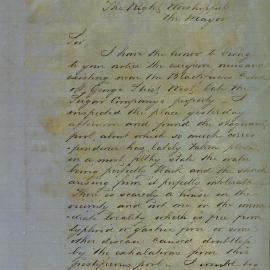 The Right Worshipful
the Mayor
Sir
I have the honor to bring
to your notice the nuisance
existing near the Blackwattle
George Street West late the
Sugar Company's property. I
inspected the place yesterday
afternoon and found the stagnant
pool, about which so much corres-
pondence has lately taken place
in a most filthy state the water
being perfectly black and the stench
arising from it perfectly intolerable
There is scarcely a house in the
vicinity and not one in the imme-
diate locality which is free from
typhoid or gastric fever or some
other disease caused doubtless
by the exhalations from this
pestiferous pool. I would beg